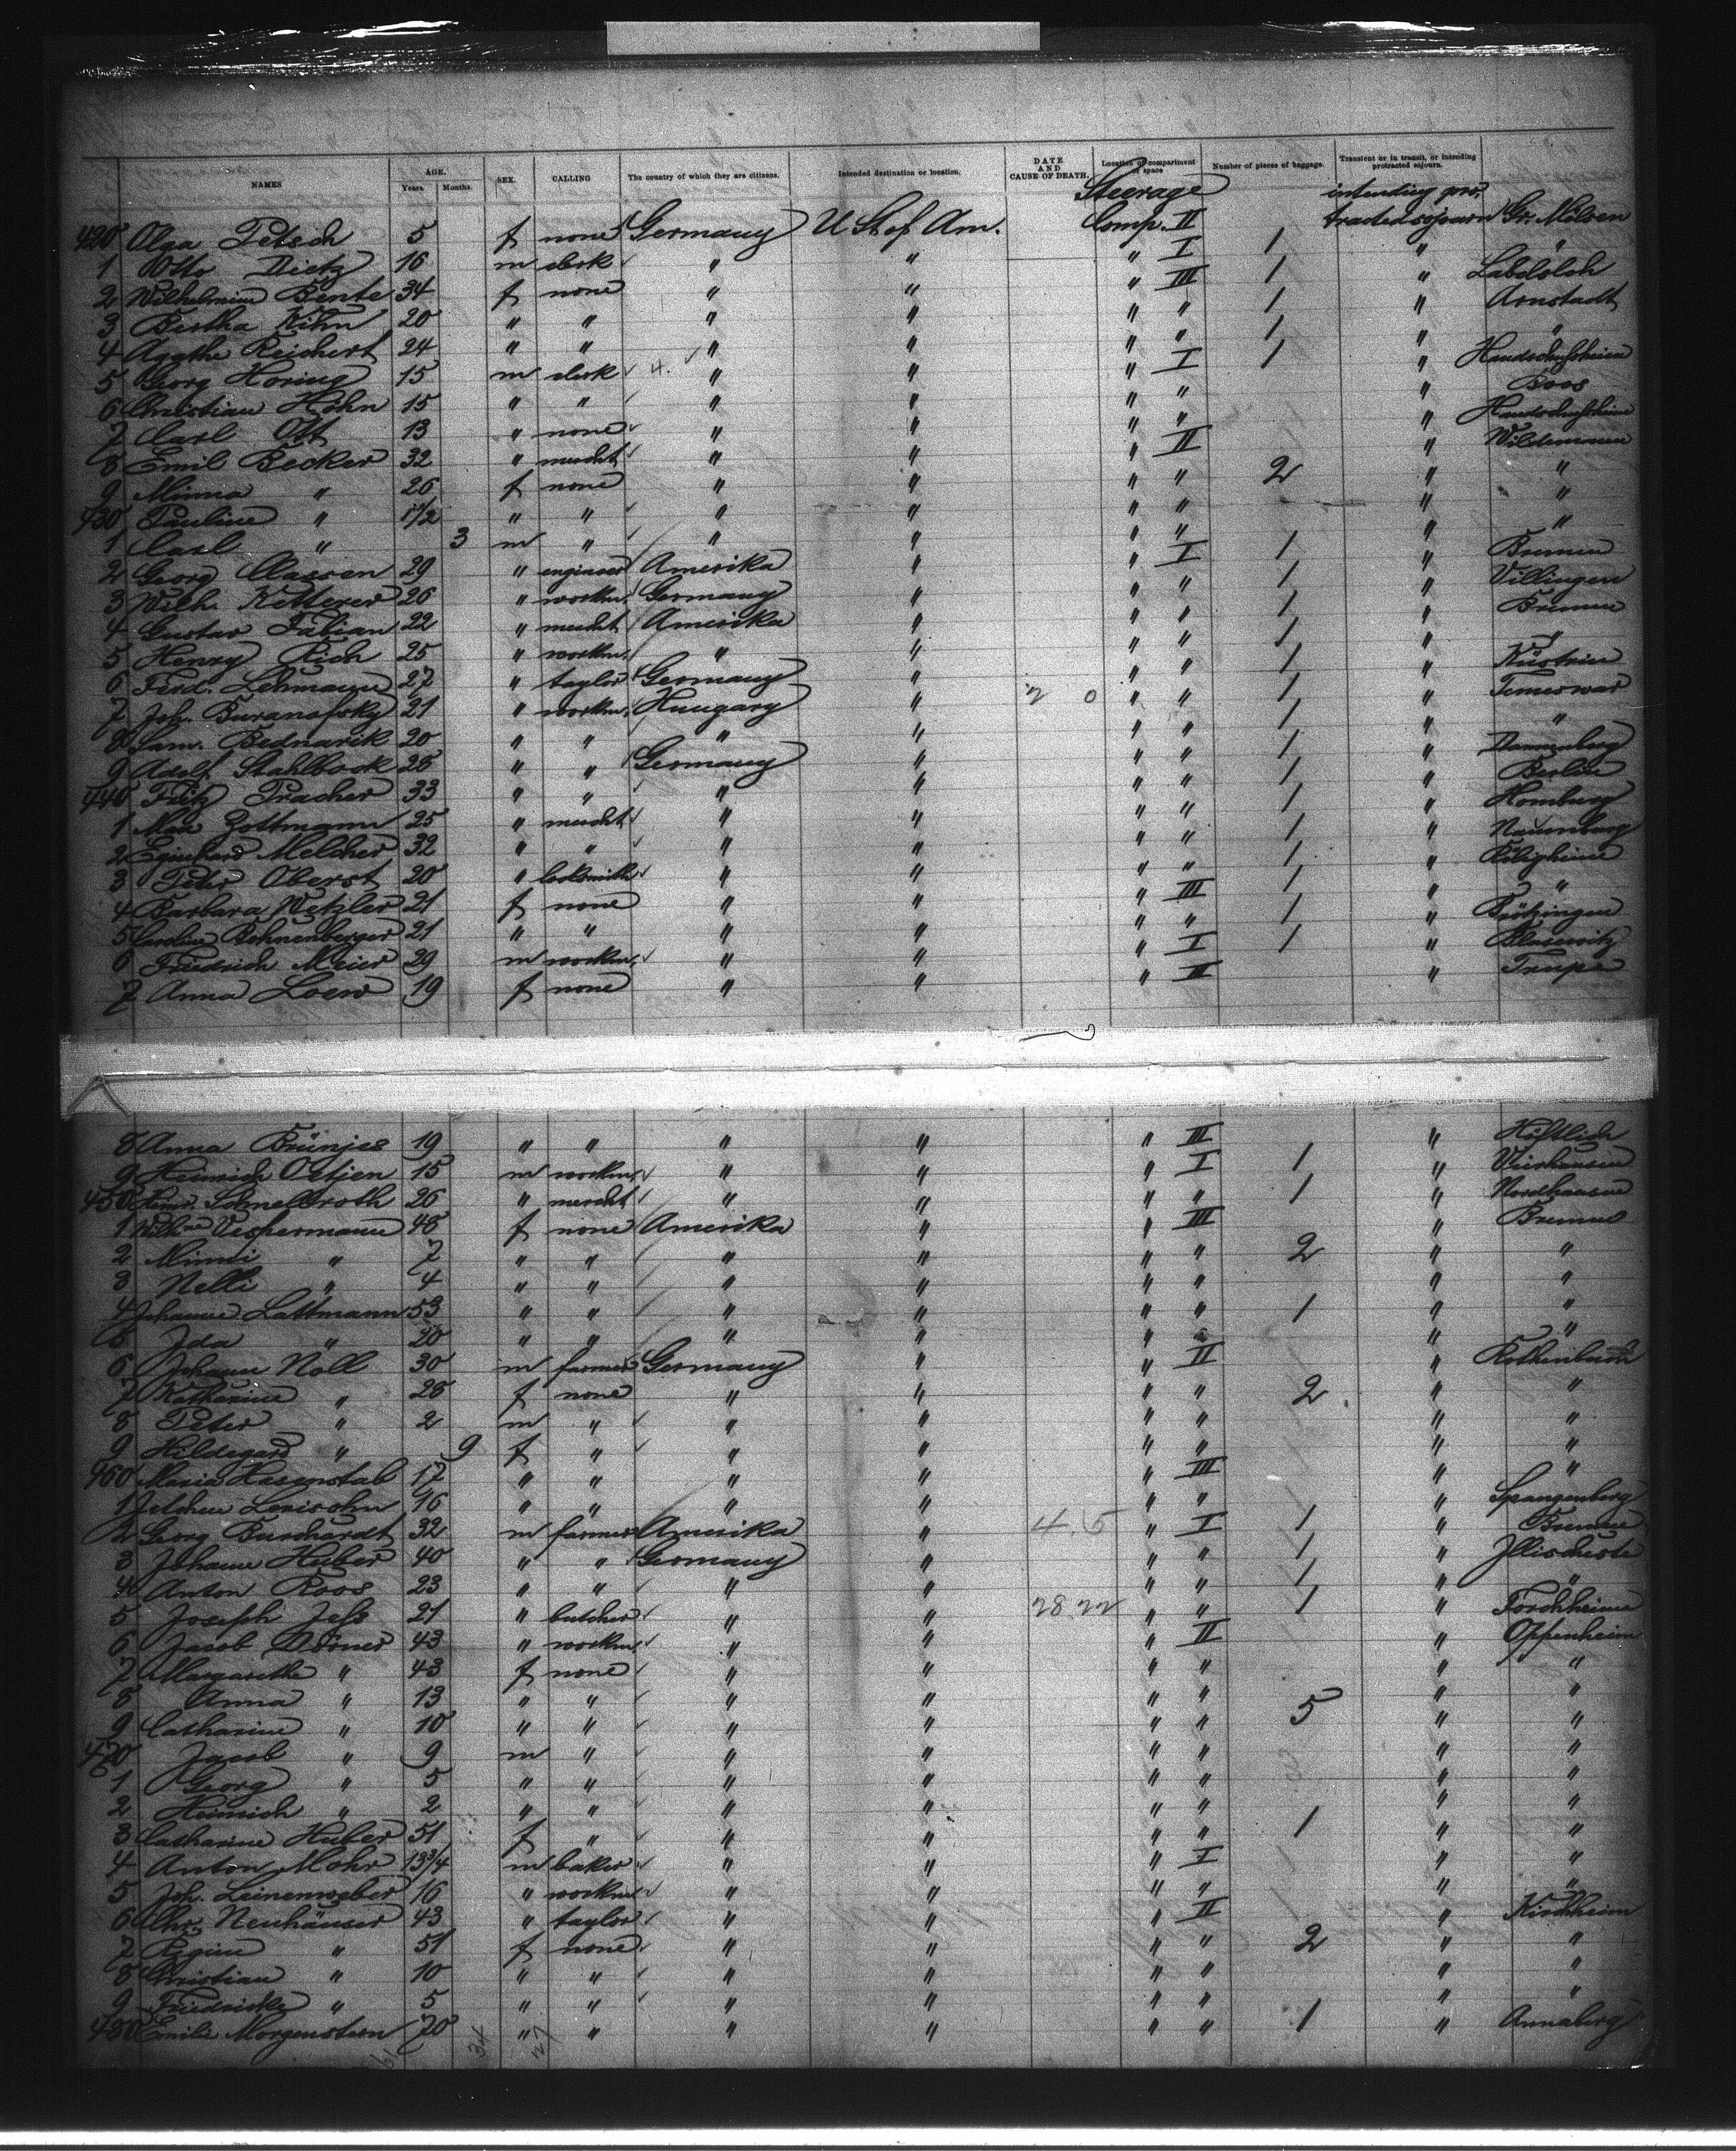 NAMES AGE. Years. Months. SEX. CALLING The country of which they are citizens. Intended destination or location. DATE AND CAUSE OF DEATH. Location of compartment or space Number of pieces of baggage. Transient or in transit, or intending protracted sojourn.
Steerage intending pro-
420 Olga Petsch 5 f none Germany U St. of Am. Comp. II tracted sojourn Gr. Mölsen
1 Otto Dietz 16 m clerk " " " I 1 " "
2 Wilhelmine Bente 34 f none " " " III 1 "
3 Bertha Kihn 20 " " " " " " 1 " Arnstadt
4 Agathe Reichert 24 " " " " " " 1 " "
5 Georg Horing 15 m clerk " " " I 1 " Handschuhsheim
6 Christian Höhn 15 " " " " " " " Boos
7 Carl Ott 13 " none " " " " " Handschuhsheim
8 Emil Becker 32 " mercht " " " II " Wildemann
9 Minna " 26 f none " " " " 2 " "
430 Pauline " 1 1/2 " " " " " " " "
1 Carl " 3 m " " " " " " "
2 Georg Classen 29 " engineer Amerika " " I 1 " Bremen
3 Wilh. Ketterer 26 " workm. Germany " " " 1 " Villingen
4 Gustav Fabian 22 " mercht Amerika " " " 1 " Bremen
5 Henry Rich 25 " workm. " " " " 1 " "
6 Ferd. Lehmann 27 " taylor Germany " " " 1 " Küstrin
7 Joh. Buranofsky 21 " workm. Hungary " 2 0 " " 1 " Temeswar
8 Sam. Bednarik 20 " " " " " " 1 " "
9 Adolf Stahlbock 28 " " Germany " " " 1 " Dannenberg
440 Fritz Pracher 33 " " " " " " 1 " Berlin
1 Max Zottmann 25 " mercht " " " " 1 " Homburg
2 Eginhard Melcher 32 " " " " " " 1 " Naumburg
3 Peter Oberst 20 " locksmith " " " " 1 "
4 Barbara Wetzler 21 f none " " " III 1 " "
5 Caroline Bohnenberger 21 " " " " " " 1 " Brötzingen
6 Friedrich Meier 29 m workm. " " " I 1 " Blasewitz
7 Anna Loew 19 f none " " " III " Trupe
8 Anna Brünjes 19 " " " " " III "
9 Heinrich Oetjen 15 m workm. " " " I 1 "
450 Heinr. Schnellroth 26 " mercht " " " " 1 " Nordhausen
1 Wilhne Vespermann 48 f none Amerika " " III " Bremen
2 Minni " 7 " " " " " " 2 " "
3 Nelli " 4 " " " " " " " "
4 Johanne Lattmann 53 " " " " " " 1 " "
5 Ida " 20 " " " " " " " "
6 Johann Noll 30 m farmer Germany " " II " Rothenbuch
7 Katharina " 28 f none " " " " 2 " "
8 Peter " 2 m " " " " " " "
9 Hildegard " 9 f " " " " " " "
460 Maria Hasenstab 17 " " " " " III " "
1 Jettchen Levisohn 16 " " " " " " " Spangenberg
2 Georg Burchardt 32 m farmer Amerika " 4. 5 " I 1 " Bremen
3 Johann Huber 40 " " Germany " " " 1 "
4 Anton Roos 23 " " " " " " 1 " "
5 Joseph Jess 21 " butcher " " 28 22 " " 1 " Forchheim
6 Jacob Dörner 43 " workm. " " " II " Oppenheim
7 Margarethe " 43 f none " " " " " "
8 Anna " 13 " " " " " " " "
9 Catharine " 10 " " " " " " 5 " "
470 Jacob " 9 m " " " " " " "
1 Georg " 5 " " " " " " " "
2 Heinrich " 2 " " " " " " " "
3 Catharine Huber 51 f " " " " " 1 " "
4 Anton Mohr 13 3/4 m baker " " " I " "
5 Joh. Leinenweber 16 " workm. " " " " " "
6 Chr. Neuhäuser 43 " taylor " " " II " Kirchheim
7 Regine " 51 f none " " " " 2 " "
8 Christian " 10 " " " " " " " "
9 Friedricke " 5 " " " " " " " "
480 Emilie Morgenstern 20 " " " " " " 1 " Annaberg
61 34 27